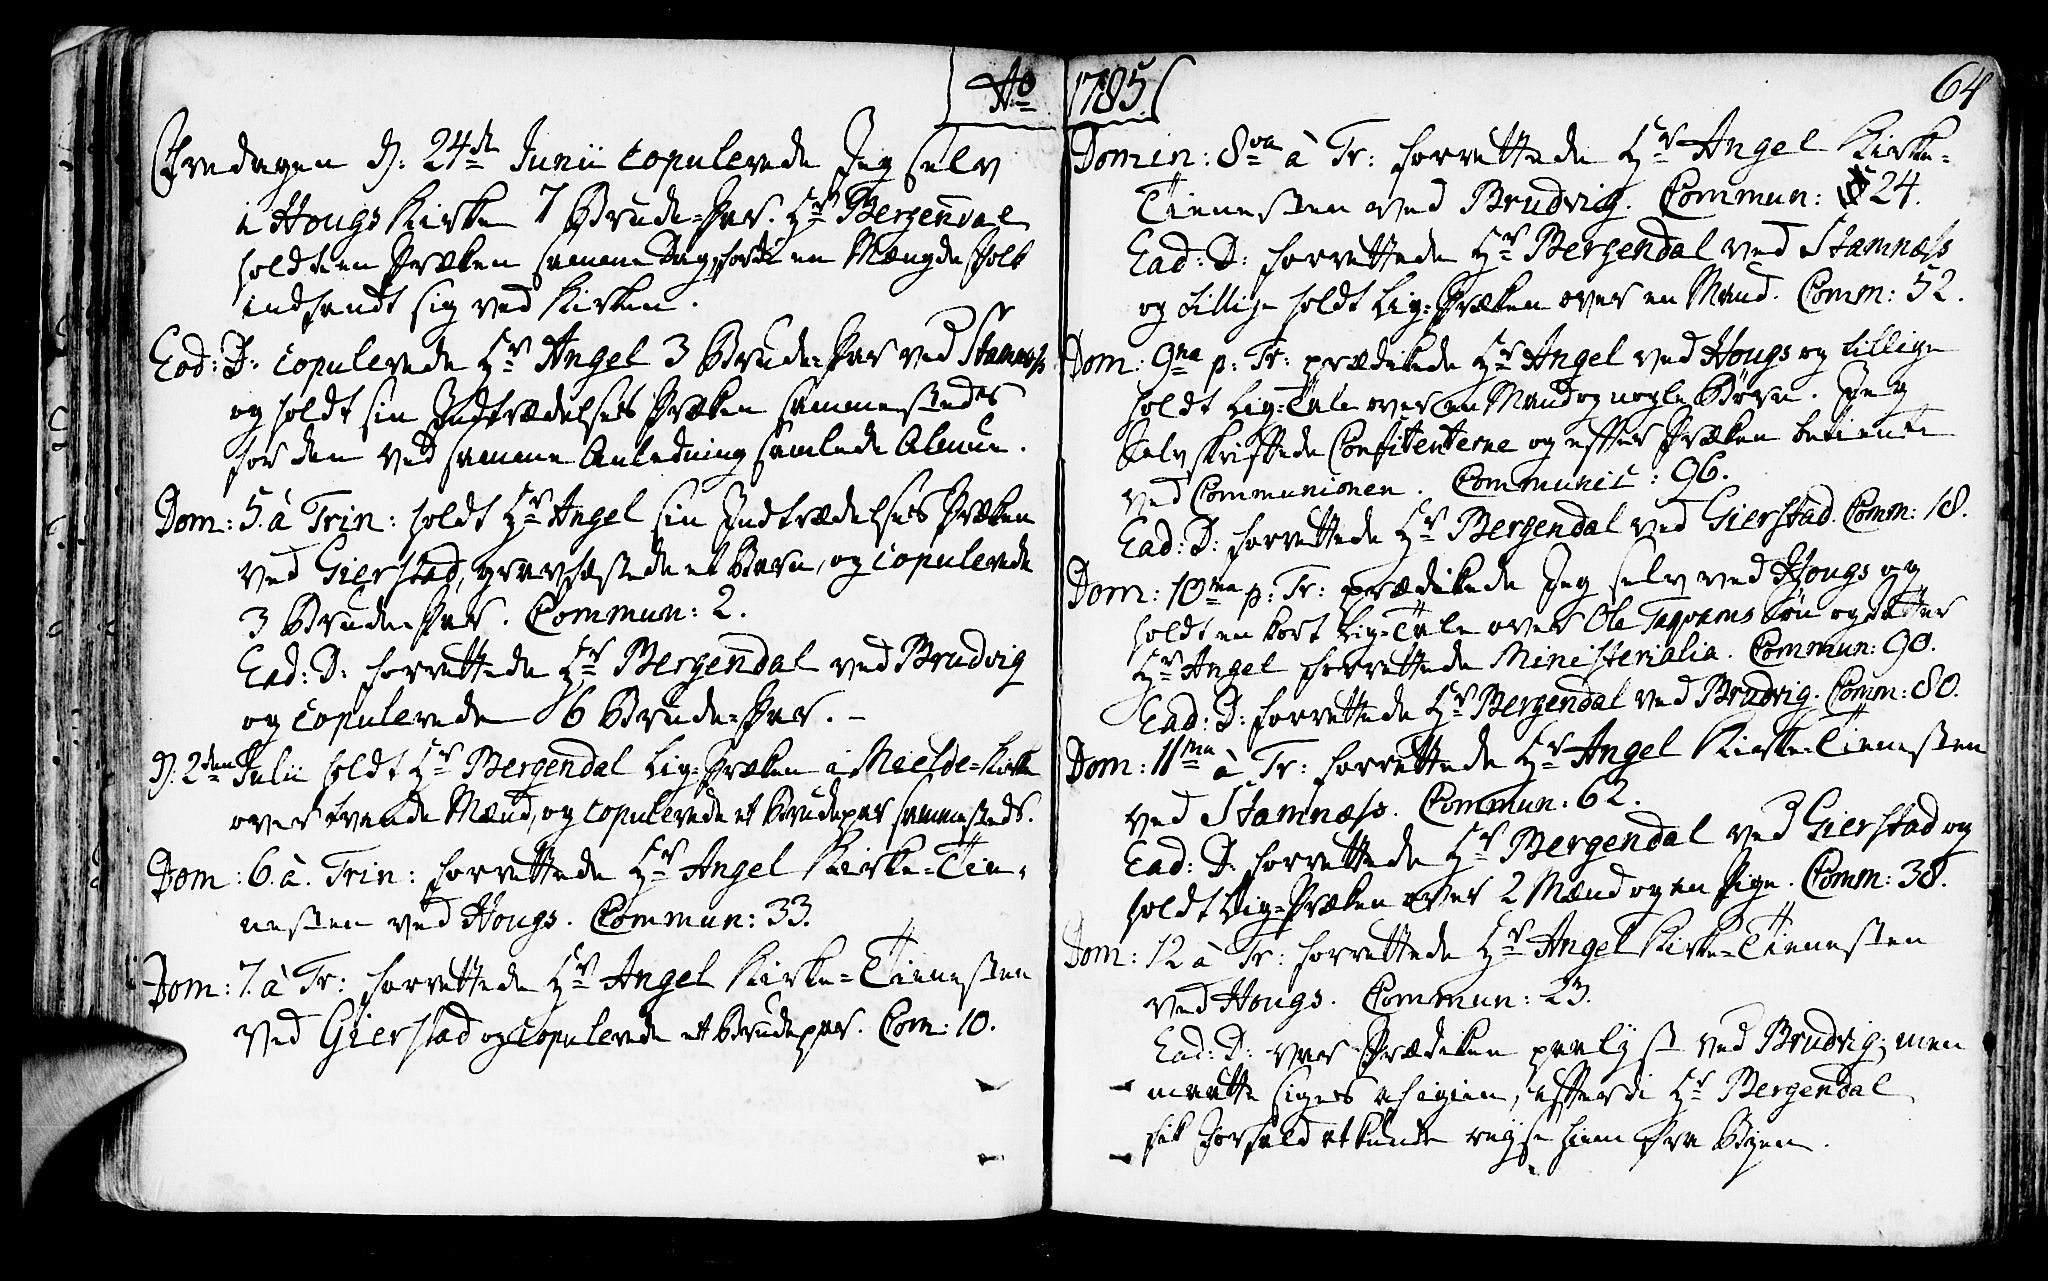 Ao 1785
64
Fredagen d: 24de Junii copulerede Jeg selv
i Hougs Kirke 7 Brude=Par. Hr Bergendal
holdt en Præken samme Dag, fordi en Mængde Folk
indfandt sig ved Kirken.
Eod: D: copulerede Hr Angel 3 Brude=Par ved Stamnæss
og holdt sin Indtrædelses Præken sammestedes
for den ved samme Anledning samlede Almue.
Dom: 5. à Trin: holdt Hr Angel sin Indtrædelses Præken
ved Gierstad, gravfæstede et Barn, og copulerede
3 Brude-Par. Commun: 2.
Ead: D: forrettede Hr Bergendal ved Brudvig
og copulerede 6 Brude=Par. –
D. 2den Julii holdt Hr Bergendal Lig=Præken i Mielde=Kirke
over tvende Mænd, og copulerede et Brudepar sammesteds.
Dom: 6. à. Trin: forrettede Hr Angel Kirke=Tie-
nesten ved Hougs. Commun: 33.
Dom: 7. à Tr: forrettede Hr Angel Kirke=Tienesten
ved Gierstad og copulerede et Brudepar. Com: 10.
Domin: 8va à Tr: forrettede Hr Angel Kirke-
Tienesten ved Brudvig. Commun: 24.
Ead: D: forrettede Hr Bergendal ved Stamnæss
og tillige holdt Lig=Præken over en Mand. Comm: 52.
Dom: 9na p: Tr: prædikede Hr Angel ved Hougs og tillige
holdt Lig=Tale over en Mand og nogle Børn. Jeg
Selv skriftede Confitenterne og efter Præken betiente
ved Communionen. Communic: 96.
Ead: D: forrettede Hr Bergendal ved Gierstad. Comm: 18.
Dom: 10ma p: Tr: prædikede Jeg selv ved Hougs og
holdt en kort Lig=Tale over Ole Taqvams Søn og Datter
Hr Angel forrettede Ministerialia. Commun: 90.
Ead: D: forrettede Hr Bergendal ved Brudvig. Comm: 80.
Dom: 11ma à Tr: forrettede Hr Angel Kirke-Tienesten
ved Stamnæss. Commun: 62.
Ead: D: forrettede Hr Bergendal ved Gierstad og
holdt Lig=Præken over 2 Mænd og en Pige. Comm: 38.
Dom: 12 à Tr: forrettede Hr Angel Kirke=Tienesten
ved Hougs. Commun: 23.
Ead: D: var Prædiken paalyst ved Brudvig; men
maatte siges af igien, efterdi Hr Bergendal
fik Forfald at kunde reyse hiem fra Byen.